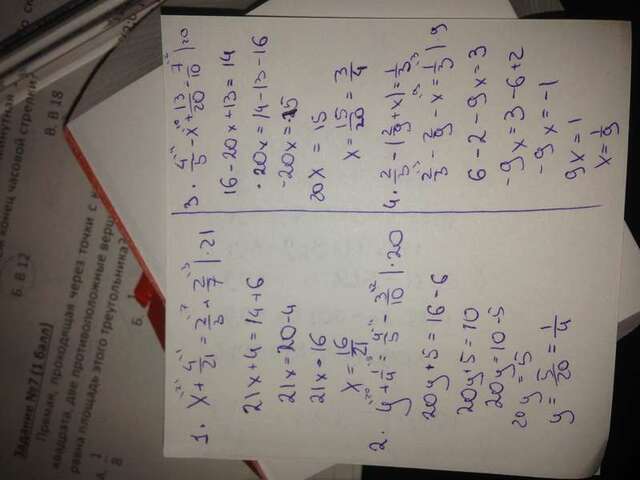 1. x + 4/21 = 2/3 + 2/7 | · 21
21x + 4 = 14 + 6
21x = 20 - 4
21x = 16
x = 16/21
2. y + 1/4 = 4/5 - 3/10 | · 20
20y + 5 = 16 - 6
20y + 5 = 10
20y = 10 - 5
20y = 5
y = 5/20 = 1/4
3. 4/5 - x + 13/20 = 7/10 | 20
16 - 20x + 13 = 14
- 20x = 14 - 13 - 16
-20x = 15
20x = 15
x = 15/20 = 3/4
4. 2/3 - (2/9 + x) = 1/3
2/3 - 2/9 - x = 1/3 | 9
6 - 2 - 9x = 3
-9x = 3 - 6 + 2
-9x = -1
9x = 1
x = 1/9
Задание №7 (1 балл)
Прямая, проходящая через точки с
квадрата, две противоположные верш
равна площадь этого треугольника?
А. 1/8
Б. 1
Б. В 12
В. В 18
конец часовой стрелки?